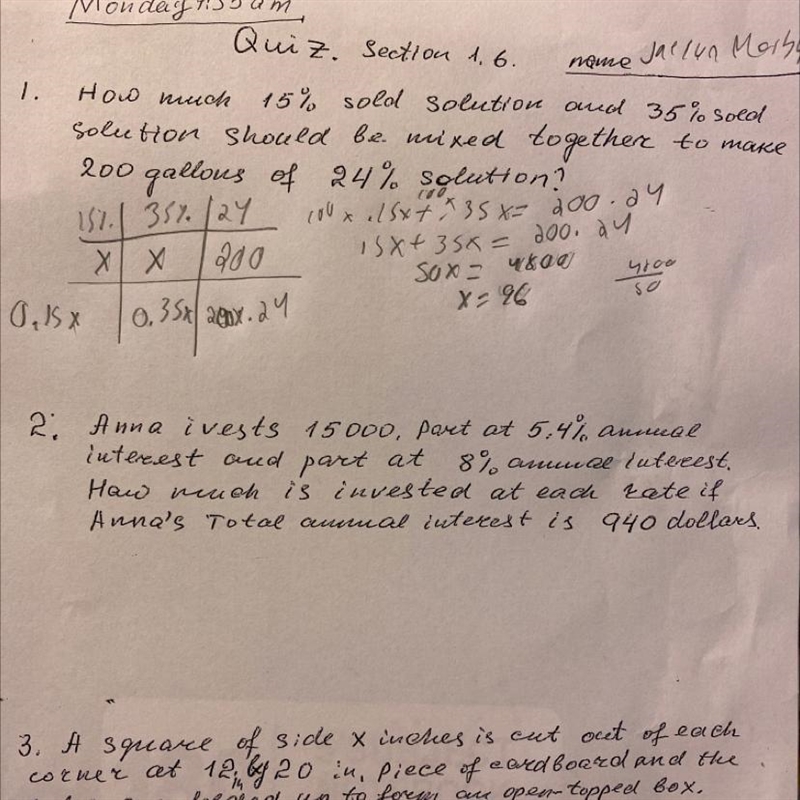 Monday
Quiz. Section 1.6. name
1. How much 15% sold solution and 35% sold
solution should be mixed together to make
200 gallons of 24% solution?
15%. 35%. 24
x x 200
0.15x 0.35x x.24
100 x .15x + 100 x .35x = 200.24
15x + 35x = 200.24
50x = 4800
4800
50
x = 96
2. Anna ivests 15000, part at 5.4% annual
interest and part at 8% annual interest.
How much is invested at each rate if
Anna's Total annual interest is 940 dollars.
3. A square of side x inches is cut out of each
corner at 12 in by 20 in, piece of cardboard and the
up to form an open-topped box.